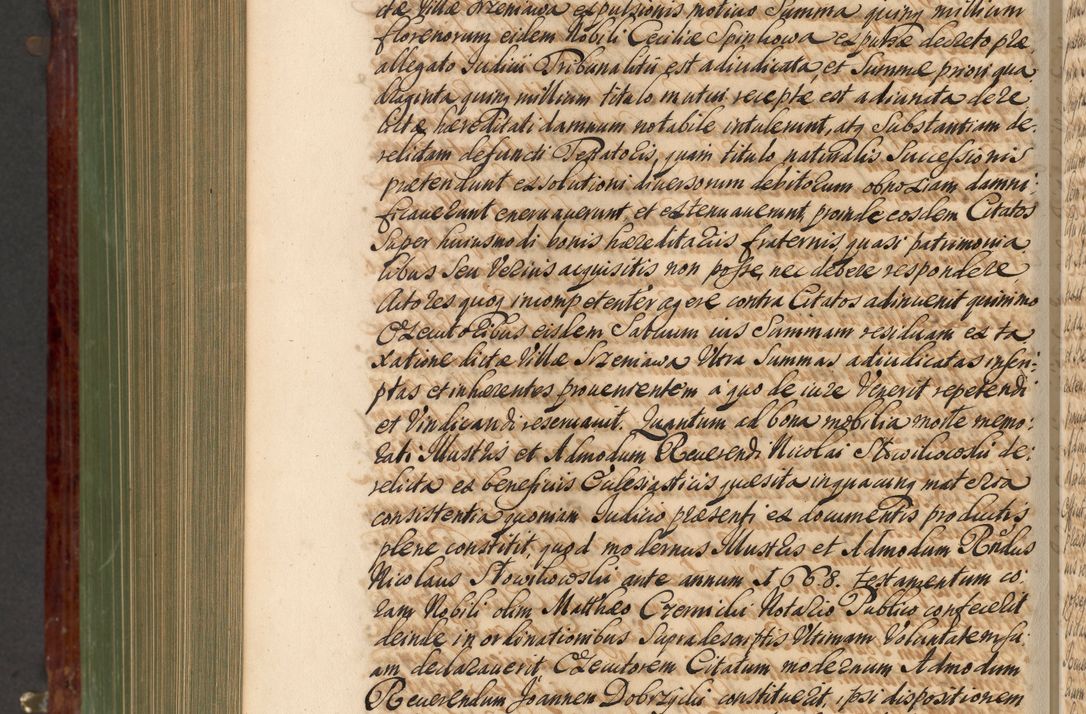 ctæ Villæ Szreniawa expulsionis motiuo Summa quinq millium
florenorum eidem Nobili Ceciliæ Spiphowa expulsæ decreto præ
allegato Iudicii Tribunalitii est adiudicata, et Summæ priori qua
draginta quinq millium titulo mutui receptæ est adiuncta dere
lictæ hæreditati damnum notabile intulerunt, atq Substantiam de:
relictam defuncti Testatoris, quam titulo naturalis Successionis
prætendunt exsolutioni diuersorum debitorum obnoxiam damni:
ficauerunt eneruauerunt, et extenuauerunt, proinde eosdem Citatos
Super huiusmodi bonis hæreditariis fraternis, quasi patrimonia
libus Seu Verius acquisitis non posse, nec debere respondere
Actores quoq incompetenter agere contra Citatos adinuenit quinimo
Executoribus eisdem Saluum ius Summam residuam ex ta
xatione dictæ Villæ Szreniawa Vltra Summas adiudicatas inscri:
ptas et inhærentes prouenientem a quo de iure Venerit repetendi
et Vindicandi reseruauit. Quantum ad bona mobilia morte memo:
rati Illustris et Admodum Reuerendi Nicolai Słowikowskii de:
relicta ex beneficiis Eclesiasticis quæsita inquacunq materia
consistentia quoniam Iudicio præsenti ex documentis productis
plene constitit, quod modernus Illustris et Admodum Rndus
Nicolaus Słowikowskii ante annum 1668. testamentum co:
ram Nobili olim Matthæo Czernicki Notario Publico confecerit
deinde in ordinationibus Supradescriptis Vltimam Voluntatem su:
am declarauerit Executorem Citatum modernum Admodum
Reuerendum Joannem Dobrzycki constituerit, ipsi dispositionem